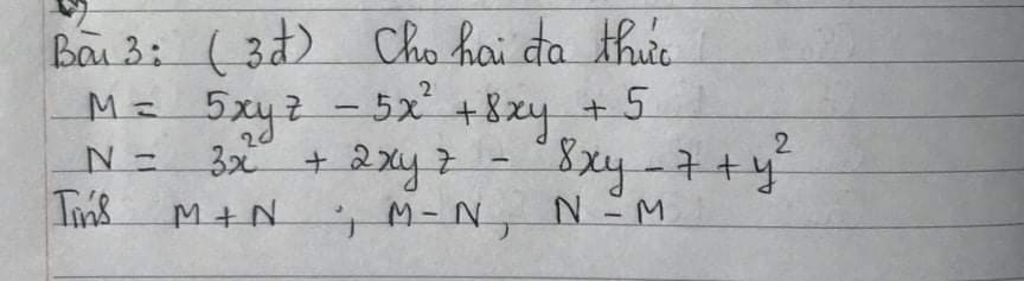 Bài 3: (3đ) Cho hai đa thức
M = 5xyz - 5x² + 8xy + 5
N = 3x² + 2xyz - 8xy - 7 + y²
Tính M + N ; M - N, N - M